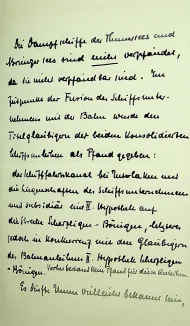 Die Dampfschiffe des Thunersees und
Brienzersees sind nicht verpfändet,
da sie nicht verpfändbar sind. Im
Zeitpunkte der Fusion des Schiffsunter-
nehmens mit der Bahn wurde den
Titelgläubigern der beiden konsolidierten
Schiffsanleihen als Pfand gegeben:
der Schiffahrtskanal bei Interlaken und
die Liegenschaften des Schiffsunternehmens
und subsidiär eine II. Hypothek auf
die Strecke Scherzligen - Bönigen, letzteres
jedoch in Konkurrenz mit den Gläubigern
der Bahnanleihe II. Hypothek Scherzligen
- Bönigen. Vorher bestand kein Pfand für diese Anleihen.
Es dürfte Ihnen vielleicht bekannt sein,